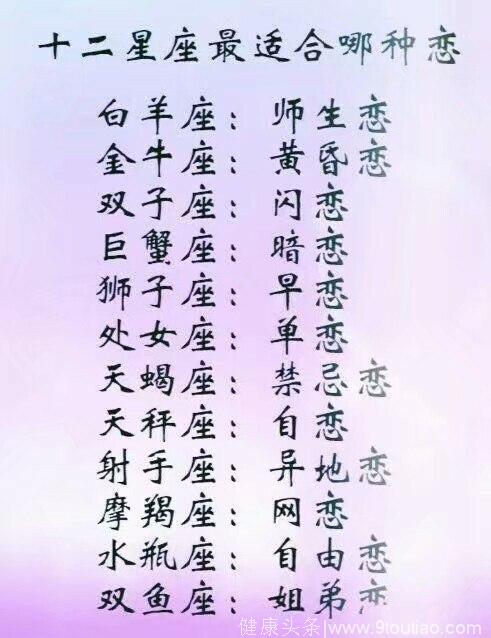 十二星座最适合哪种恋
白羊座：师生恋
金牛座：黄昏恋
双子座：闪恋
巨蟹座：暗恋
狮子座：早恋
处女座：单恋
天蝎座：禁忌恋
天秤座：自恋
射手座：异地恋
摩羯座：网恋
水瓶座：自由恋
双鱼座：姐弟恋
健康头条/www.9toutiao.com